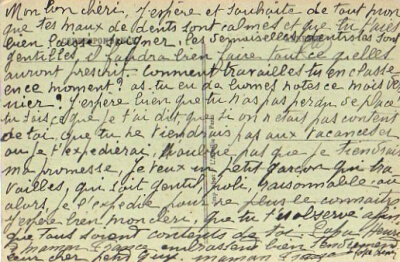 Mon bon chéri, J'espère et souhaite de tout mon
que tes maux de dents sont calmés et que tu t'es
bien laissé soigner, les demoiselles dentistes sont
gentilles, il faudra bien faire tout ce qu'elles
auront prescrit. Comment travailles tu en classe
en ce moment? as-tu eu de bonnes notes ce mois
nier? J'espère bien que tu n'as pas perdu de place
tu sais ce que je t'ai dit, que si on n'était pas content
de toi, que tu ne viendrais pas aux vacances
ou je t'expédierai, n'oublie pas que je tiendrais
ma promesse, je veux un petit garçon qui tra
vailles, qui soit gentil, poli, raisonnable
alors, je l'expédie pour ne plus le connaître
J'espère bien mon chéri, que tu t'observe afin
que tous soient contents de toi. Papa
maman embrassent bien tendrement
leur cher petit maman